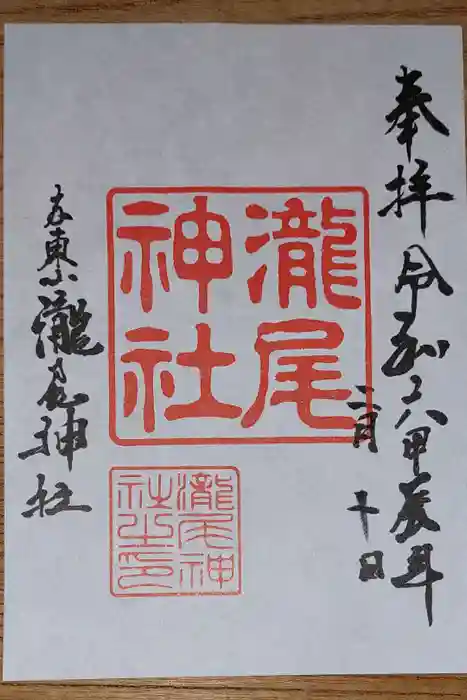 奉拝 令和六甲辰年
二月 十日
瀧尾
神社
瀧尾神
社之印
東山 瀧尾神社